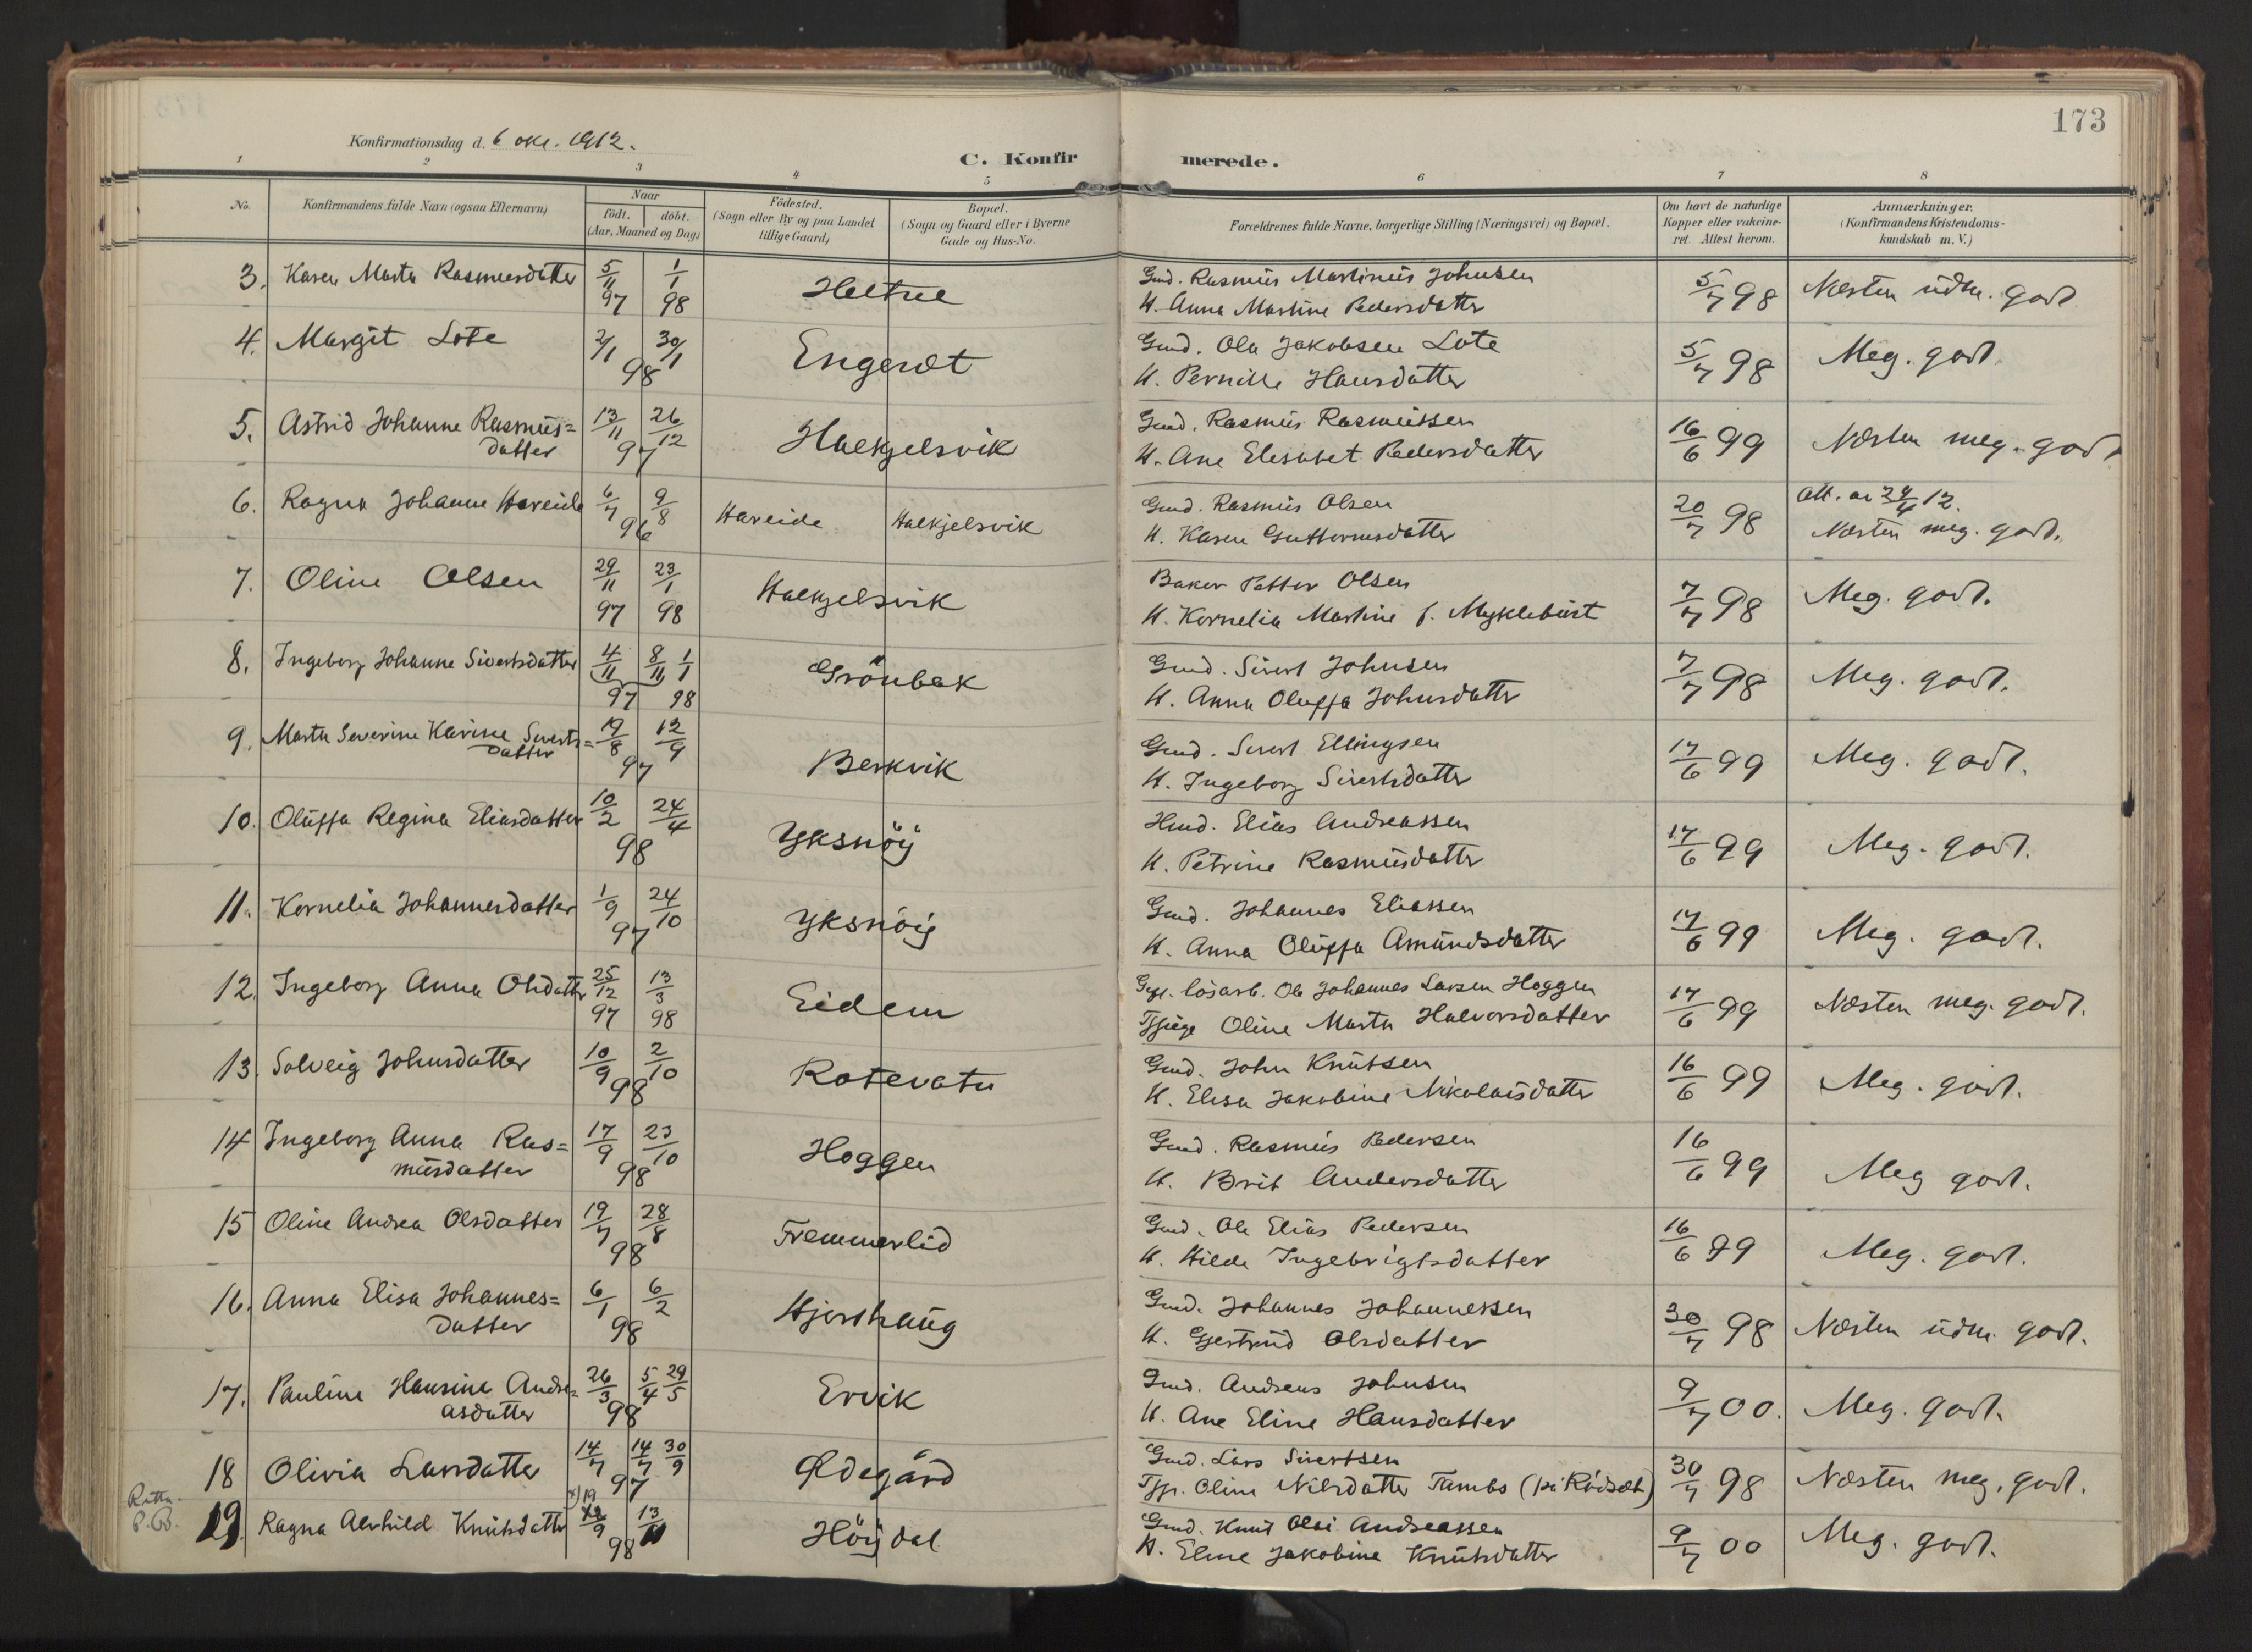 173
Konfirmationsdag d. 6 okt. 1912.
C. Konfirmerede.
1 2 3 4 5 6 7 8
No. Konfirmandens fulde Navn (ogsaa Efternavn) Naar födt. döbt. (Aar, Maaned og Dag) Födested. (Sogn eller By og paa Landet tillige Gaard) Bopæl. (Sogn og Gaard eller i Byerne Gade og Hus-No. Forældrenes fulde Navne, borgerlige Stilling (Næringsvei) og Bopæl. Om havt de naturlige Kopper eller vakcineret. Attest herom. Anmærkninger. (Konfirmandens Kristendomskundskab m. V.)
3. Karen Marta Rasmusdatter 5/11 97 1/1 98 Gmd. Rasmus Martinius Johnsen 5/7 98 Næsten udm. godt
H. Anna Martine Pedersdatter
4. Margit Lote 2/1 30/1 98 Engeset Gmd. Ola Jakobsen Lote 5/7 98 Meg. godt
H. Pernille Hansdatter
5. Astrid Johanne Rasmus= 13/11 26/12 97 Halkjelsvik Gmd. Rasmus Rasmussen 16/6 99 Næsten meg. godt
datter H. Ane Elisabet Pedersdatter
6. Ragna Johanne Hareide 6/7 9/8 96 Hareide Halkjelsvik Gmd. Rasmus Olsen 20/7 98 Att. av 24/4 12.
H. Karen Guttormsdatter Næsten meg. godt.
7. Oline Olsen 29/11 97 23/1 98 Halkjelsvik Baker Petter Olsen 7/7 98 Meg. godt.
H. Kornelia Martine f. Myklebust
8. Ingeborg Johanne Sivertsdatter 4/11 8/11 97 1/1 98 Grönbek Gmd. Sivert Johnsen 7/7 98 Meg. godt.
H. Anna Oluffa Johnsdatter
9. Marta Severine Karine Siverts= 19/8 12/9 97 Berkvik Gmd. Sivert Ellingsen 17/6 99 Meg. godt.
datter H. Ingeborg Sivertsdatter
10. Oluffa Regina Eliasdatter 10/2 24/4 98 Yksnöy Hmd. Elias Andreassen 17/6 99 Meg. godt.
H. Petrine Rasmusdatter
11. Kornelia Johannesdatter 1/9 24/10 97 Yksnöy Gmd. Johannes Eliassen 17/6 99 Meg. godt.
H. Anna Oluffa Amundsdatter
12. Ingeborg Anna Olsdatter 25/12 97 13/3 98 Eidem lösarb. Ole Johannes Larsen Hoggen 17/6 99 Næsten meg. godt.
Tjpige Oline Marta Halvorsdatter
13. Solveig Johnsdatter 10/9 2/10 98 Rotevatn Gmd. John Knutsen 16/6 99 Meg. godt.
H. Elisa Jakobine Nikolaisdatter
14 Ingeborg Anna Ras= 17/9 23/10 98 Hoggen Gmd. Rasmus Pedersen 16/6 99 Meg godt.
musdatter H. Brit Andersdatter
15 Oline Andrea Olsdatter 19/7 28/8 98 Fremmerlid Gmd. Ole Elias Pedersen 16/6 99 Meg. godt.
H. Hilda Ingebrigtsdatter
16. Anna Elisa Johannes= 6/1 6/2 98 Hjorthaug Gmd. Johannes Johannessen 30/7 98 Næsten udm. godt.
datter H. Gjertrud Olsdatter
17. Pauline Hansine Andre= 26/3 5/4 29/5 98 Ervik Gmd. Andreas Johnsen 9/7 00. Meg. godt.
asdatter H. Ane Eline Hansdatter
18 Olivia Larsdatter 14/7 14/7 30/9 97 Ødegård Gmd. Lars Sivertsen 30/7 98 Næsten meg. godt.
Tjp. Oline Nilsdatter Tambs (på Rödset)
P.B. 19. Ragna Alvhild Knutsdatter x) 19/9 13/11 98 Höydal Gmd. Knut Olai Andreassen 9/7 00 Meg. godt.
H. Eline Jakobine Knutsdatter